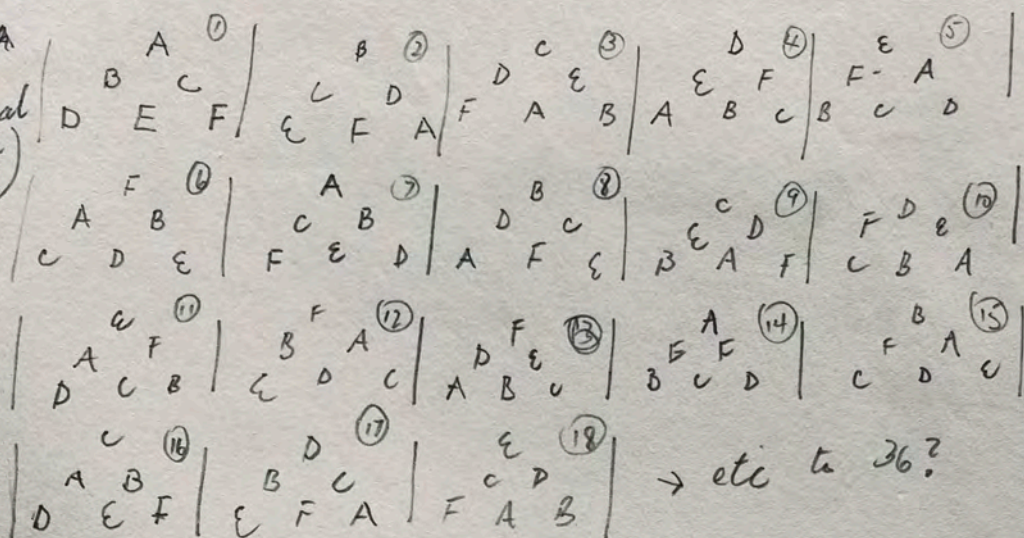 A ①
B C
D E F
B ②
C D
E F A
C ③
D E
F A B
D ④
E F
A B C
E ⑤
F- A
B C D
F ⑥
A B
C D E
A ⑦
C B
F E D
B ⑧
D C
A F E
C ⑨
E D
B A F
D ⑩
F E
C B A
E ⑪
A F
D C B
F ⑫
B A
E D C
F ⑬
D E
A B C
A ⑭
E F
B C D
B ⑮
F A
C D E
C ⑯
A B
D E F
D ⑰
B C
E F A
E ⑱
C D
F A B
→ etc to 36?